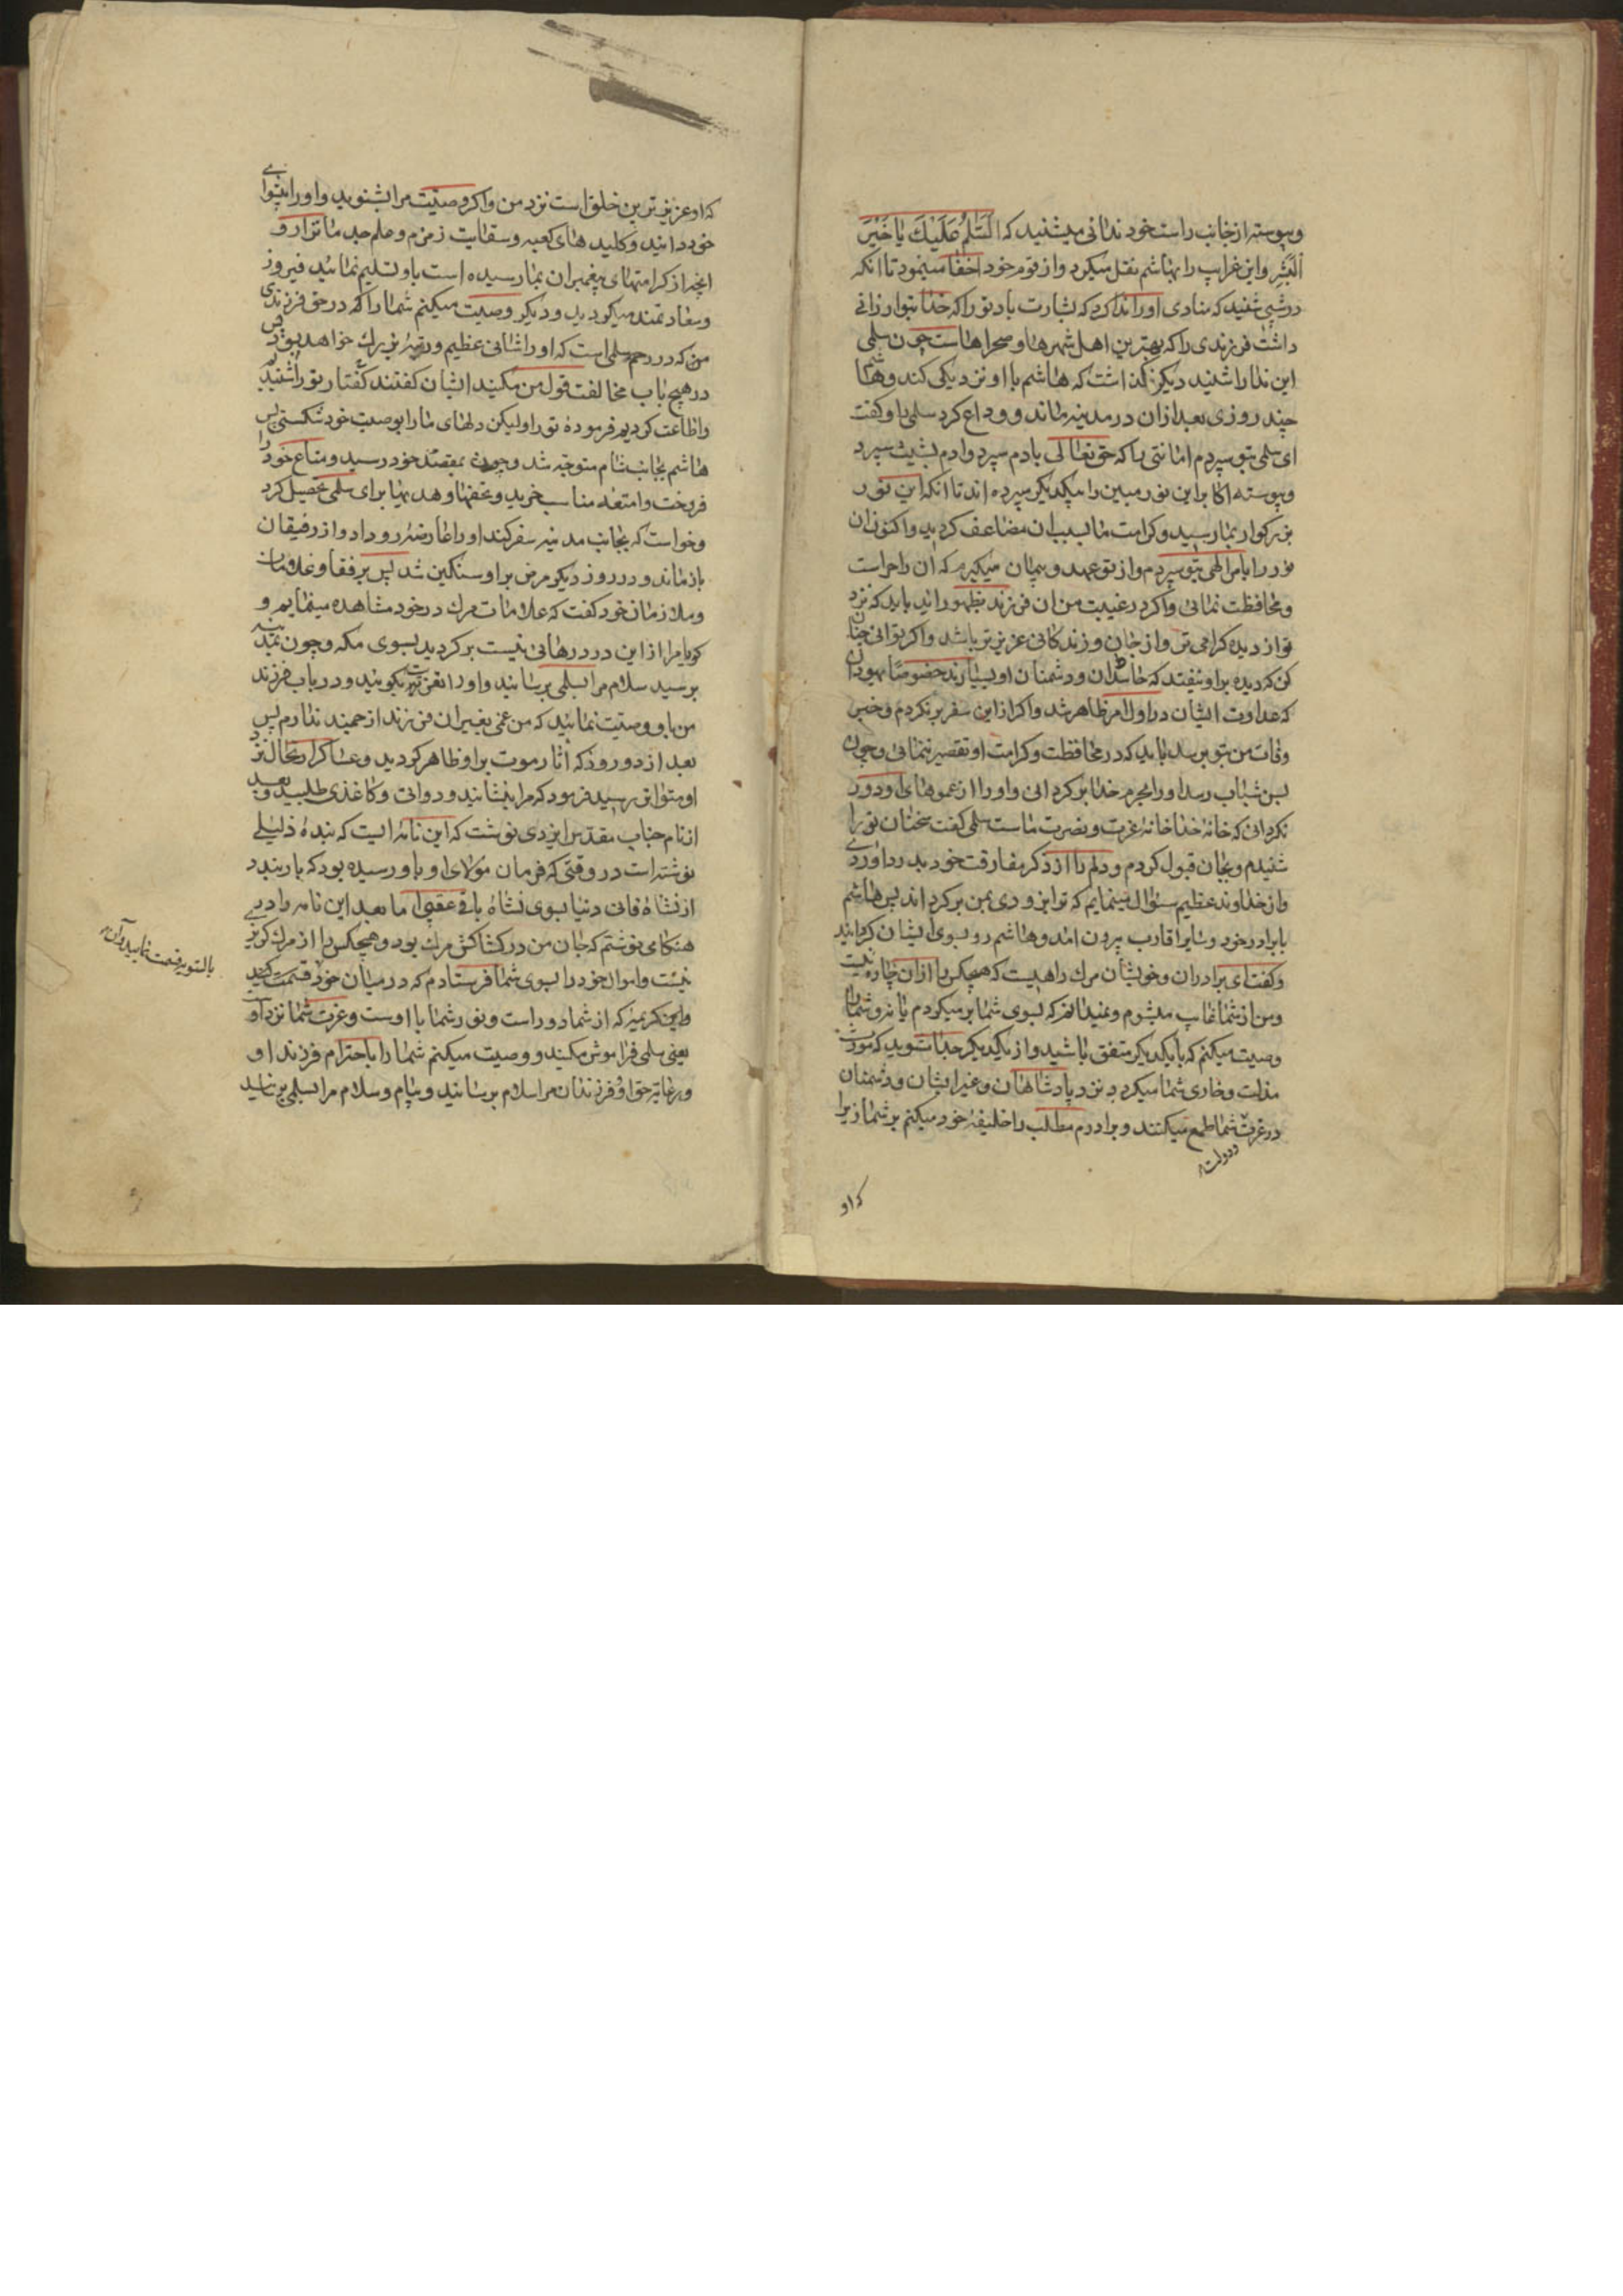 وپیوسته از جانب راست خود ندائی میشنید که اَلسَّلامُ عَلَیْكَ یا خَیْرَ
اَلْبَشَرِ و این غرایب را بهاشم نقل میکرد و از قوم خود اخفا مینمود تا انکه
در شبی شنید که منادی او را ندا کرد که بشارت باد تو را که خدا بتو ارزانی
داشت فرزندی را که بهترین اهل شهرها و صحراهاست چون سلمی
این ندا را شنید دیگر نگذاشت که هاشم با او نزدیکی کند و هاشم
چند روزی بعد ازان در مدینه ماند و وداع کرد سلمی را و کفت
ای سلمی بتو سپردم امانتی را که حق تعالی بادم سپرد و ادم بشیث سپرد
وپیوسته اکابر این نور مبین را بیکدیکر سپرده اند تا انکه این نور
بزرکوار بما رسید و کرامت ما بسبب ان مضاعف کردید و اکنون ان
نور را بامر الهی بتو سپردم و از تو عهد و پیمان میکیرم که ان را حراست
و محافظت نمائی و اکر در غیبت من ان فرزند بظهور اید باید که نزد
تو از دیده کرامی تر و از جان و زندکانی عزیزتر باشد و اکر توانی چنان
کن که دیده بر او نیفتد که حاسدان و دشمنان او بسیارند خصوصًا یهودان
که عداوت ایشان در اول امر ظاهر شد و اکر از این سفر برنکردم و خبر
وفات من بتو برسد باید که در محافظت و کرامت او تقصیر ننمائی و چون
بسن شباب رسد او را بحرم خدا برکردانی و او را از عموهای او دور
نکردانی که خانهٔ خدا خانهٔ عزت و نصرت ماست سلمی کفت سخنان تو را
شنیدم و بجان قبول کردم و دلم را از ذکر مفارقت خود بدرد اوردی
و از خداوند عظیم سئوال مینمایم که تو را بزودی بمن برکرداند پس هاشم
با برادر خود و سایر اقارب بیرون امد و هاشم رو بسوی ایشان کردانید
و کفت ای برادران و خویشان مرك راهیست که هیچکس را ازان چاره نیست
و من از شما غایب میشوم و نمیدانم که بسوی شما برمیکردم یا نه و شما را
وصیت میکنم که با یکدیکر متفق باشید و از یکدیکر جدا نشوید که مورث
مذلت و خاری شما میکردد نزد پادشاهان و غیر ایشان و دشمنان
در عزت شما طمع میکنند و برادرم مطلب را خلیفهٔ خود میکنم بر شما زیرا
ودولت
که او
که او عزیزترین خلق است نزد من و اکر وصیّت مرا بشنوید و او را پیشوای
خود دانید و کلید های کعبه و سقایت زمزم و علم جد ما نزار و
انچه از کرامتهای پیغمبران بما رسیده است باو تسلیم نمائید فیروز
و سعادتمند میکردید و دیکر وصیت میکنم شما را که در حق فرزندی
من که در رحم سلمی است که او را شانی عظیم و رتبهٔ بزرك خواهد بود پس
در هیچ باب مخالفت قول من مکنید ایشان کفتند کفتار تو را شنیدیم
و اطاعت کردیم فرمودهٔ تو را و لیکن دلهای ما را بوصیت خود شکستی پس
هاشم بجانب شام متوجّه شد و چون بمقصد خود رسید و متاع خود را
فروخت و امتعهٔ مناسب خرید و تحفها و هدیها برای سلمی تحصیل کرد
و خواست که بجانب مدینه سفر کند او را عارضهٔ رو داد و از رفیقان
باز ماند و در روز دیکر مرض بر او سنکین شد پس برفقا و غلامان
و ملازمان خود کفت که علامات مرك در خود مشاهده مینمایم و
کویا مرا از این درد رهائی نیست برکردید بسوی مکه و چون بمدینه
برسید سلام مرا بسلمی برسانید و او را تعزیت بکویید و در باب فرزند
من باو وصیّت نمائید که من غمی بغیر ان فرزند ارجمند ندارم پس
بعد از دو روز که اثار موت بر او ظاهر کردید و عساکر ارتحال نزد
او متواتر رسید فرمود که مرا بنشانید و دواتی و کاغذی طلبید و بعد
از نام جناب مقدس ایزدی نوشت که این نامهٔ ایست که بندهٔ ذلیلی
نوشته است در وقتی که فرمان مولای او باو رسیده بود که بار بندد
از نشاهٔ فانی دنیا بسوی نشاهٔ باقی عقبی اما بعد این نامه را در
هنکامی نوشتم که جان من در کشاکش مرك بود و هیچکس را از مرك کریز
نیست و اموال خود را بسوی شما فرستادم که در میان خود قسمت کنید
بالسّویه قسمت نمایید و آن
و این کریمهٔ که از شما دور است و نور شما با اوست و عزت شما نزد اوست
یعنی سلمی فراموش مکنید و وصیت میکنم شما را باحترام فرزند او
و رعایت حق او و فرزندان مرا سلام برسانید و پیام و سلام مرا بسلمی برسانید